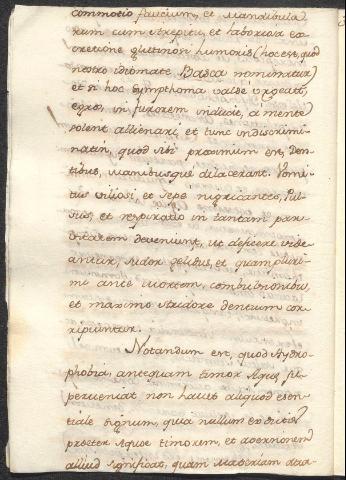 commotio faucium, et Mandibula-
rum cum strepitu, et laboriosa ex-
cretione glutinosi humoris (hoc est, quod
nostro idiomate Basca nominatur)
et si hoc symphoma valdè urgeat,
egros, in furorem inducit, à mente
solent alliènari, et tunc indiscrimi-
natim, quod sibi proximum est, Den-
tibus, Manibusque dilacerant. Vomi-
tus viliosi, et sepè nigricantes, Pul-
sus, et respiratio in tantam parv-
vitatem deveniunt, ut deficere vide-
antur, sudor gelidus, et quam pluri-
mi ante Mortem, combulsionibus,
et maximo stridore dentium cor-
ripiuntur.
Notandum est, quod Hydro-
phobia, antequam timor Aquę su-
perveniat non habet aliquod esen-
tiale signum, quia nullum ex dictis
praeter Aquae timorem, et adversionem
alliud significat, quam Materiam